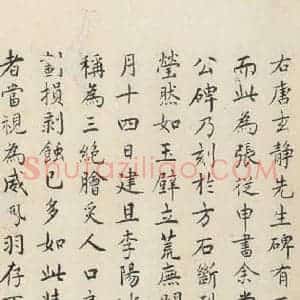 右唐玄靜先生碑有
而此為張從申書余嘗
公碑乃刻於方石斷
瑩然如玉壁立荒廡間
月十四日建且李陽
稱為三絕膾炙人口
劖損剝蝕已多如此
者當視為威鳳羽存
Shufaziliao.com